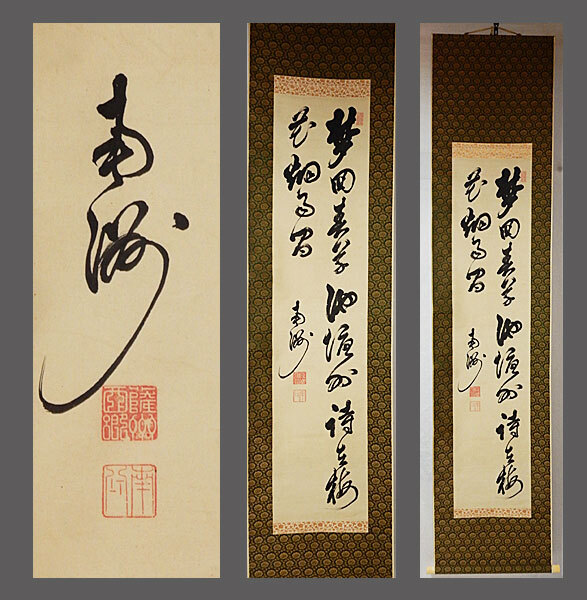 南洲
夢回春草池塘外詩在梅
花烟雨間
南洲
夢回春草池塘外詩在梅
花烟雨間
南洲